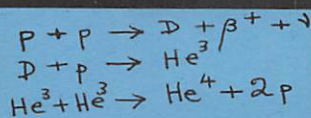 p + p → D + β⁺ + ν
D + p → He³
He³ + He³ → He⁴ + 2p